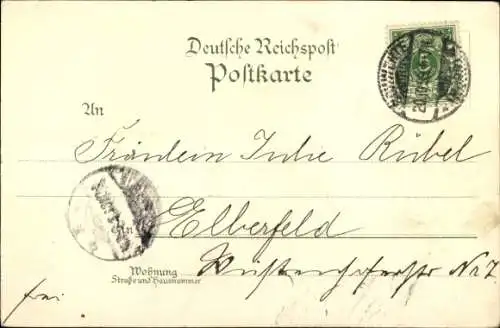 Deutsche Reichspost
Postkarte
An
Fräulein Julie Rübel
in
Elberfeld
Wohnung
Straße und Hausnummer
No 7
frei